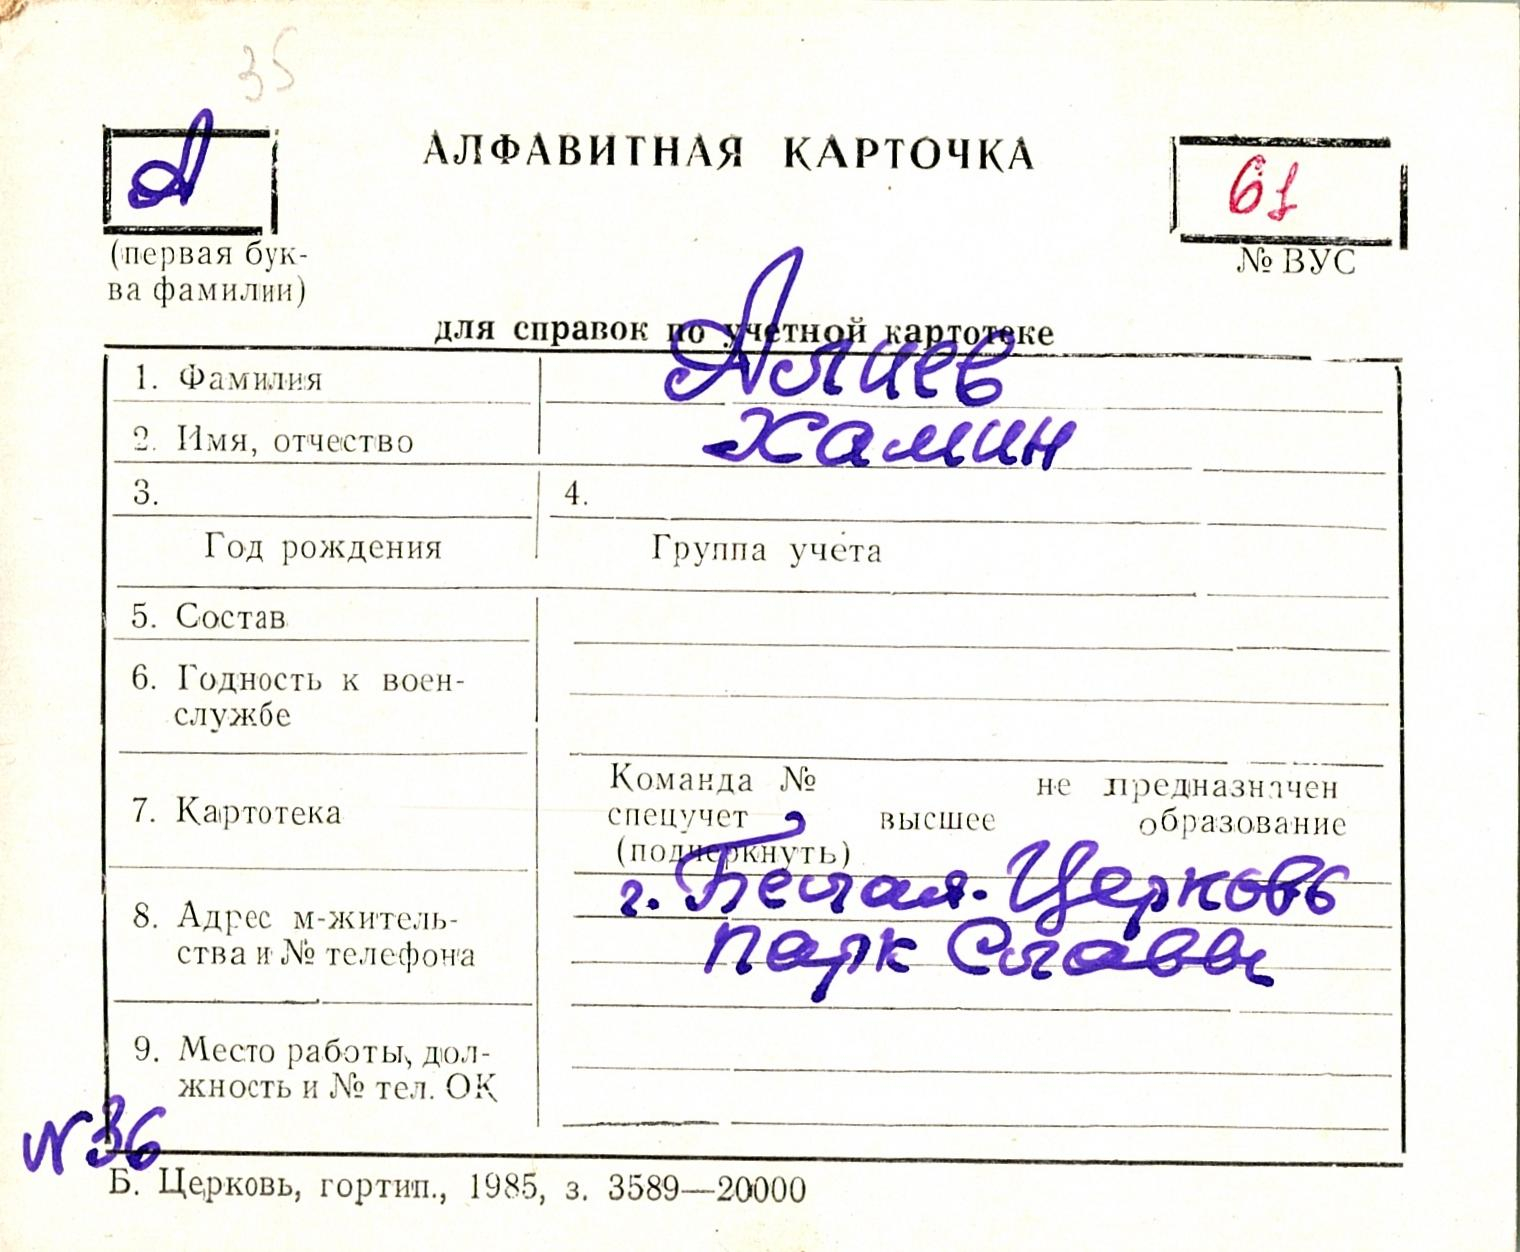 35
А АЛФАВИТНАЯ КАРТОЧКА 61
(первая бук-
ва фамилии)
№ ВУС
для справок по учетной картотеке
1. Фамилия Алиев
2. Имя, отчество Хамин
3. 4.
Год рождения Группа учета
5. Состав
6. Годность к воен-
службе
7. Картотека
Команда № не предназначен
спецучет высшее образование
(подчеркнуть)
8. Адрес м-житель-
ства и № телефона
г. Белая-Церковь
парк Славы
9. Место работы, дол-
жность и № тел. ОК
N 36
Б. Церковь, гортип., 1985, з. 3589—20000